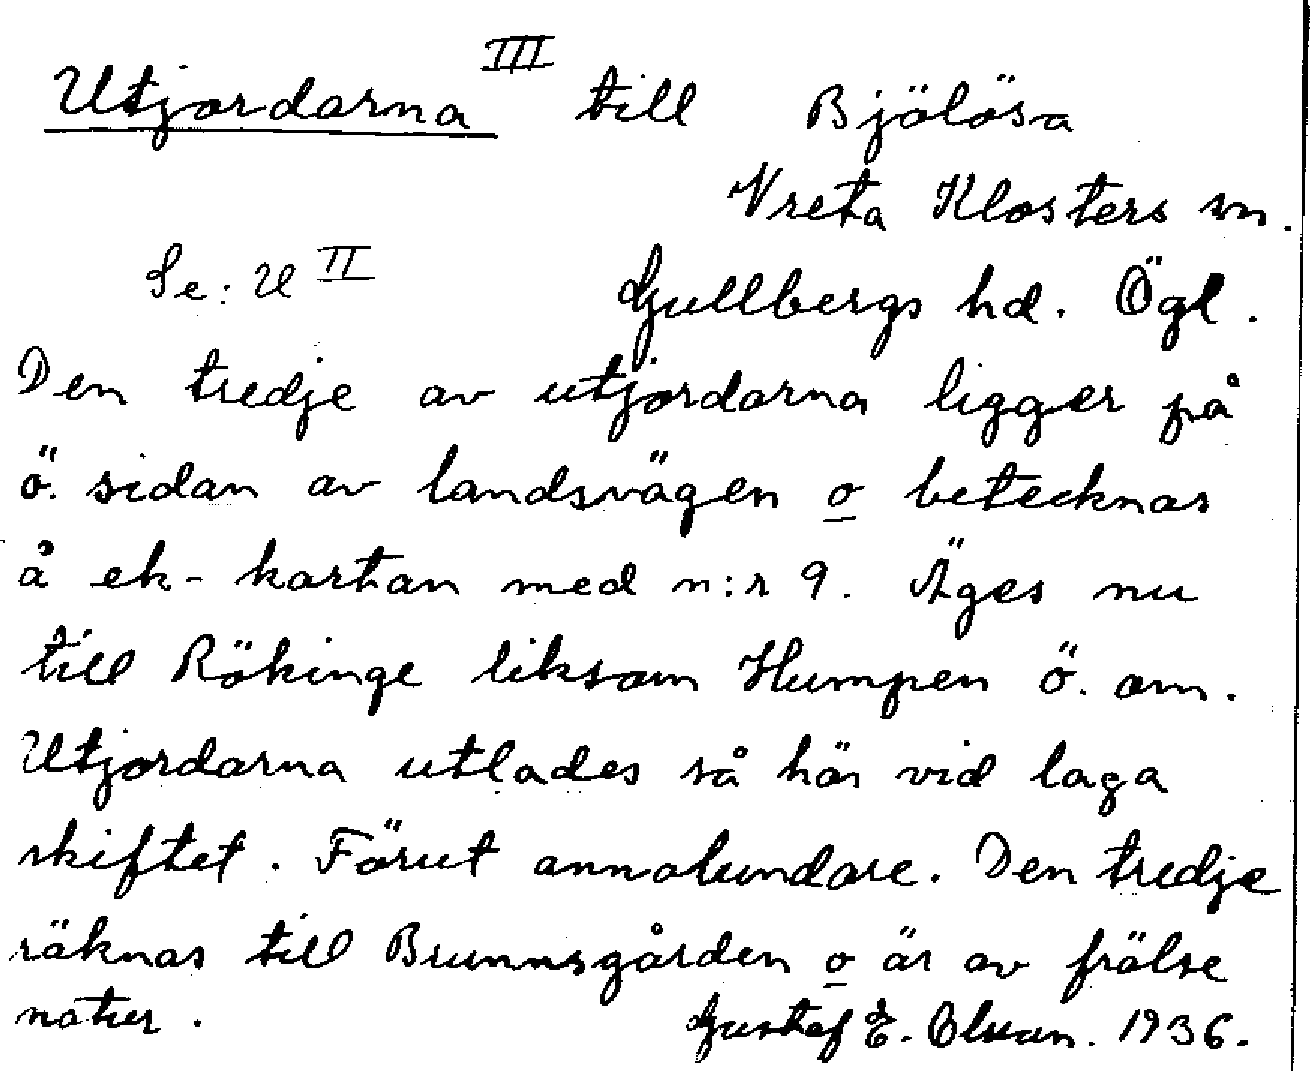 Utjordarna III till Bjölösa
Vreta Klosters sn.
Se: U II Gullbergs hd. Ögl.
Den tredje av utjordarna ligger på
ö. sidan av landsvägen o betecknas
å ek-kartan med n:r 9. Äges nu
till Rökinge liksom Humpen ö. om.
Utjordarna utlades så här vid laga
skiftet. Förut annolundare. Den tredje
räknas till Brunnsgården o är av frälse
natur. Gustaf E. Olsson. 1936.